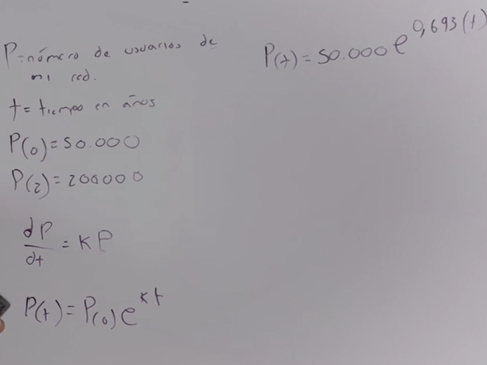 P=número de usuarios de
mi red.
t = tiempo en años
P(0)=50.000
P(2)=200000
dP/dt = KP
P(t)=P(0)e^kt
P(t)=50.000e^0,693(t)